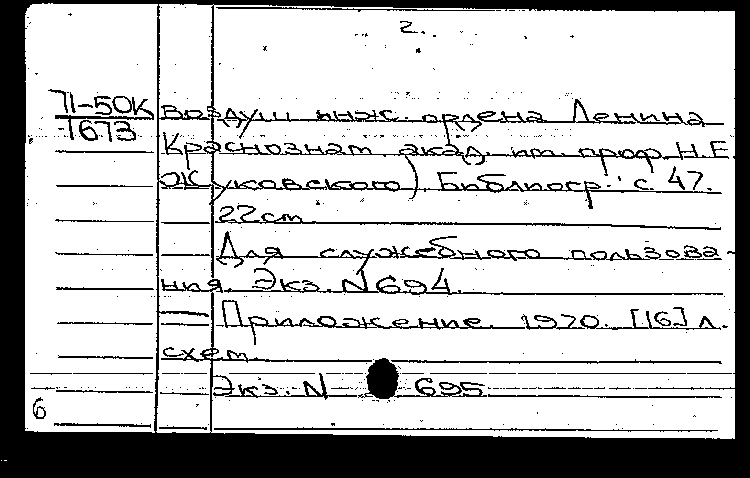 2.
71-50К Воздуш инж. ордена Ленина
1673
Краснознам. акад. им проф. Н.Е.
Жуковского). Библиогр.: с. 47.
22см.
Для служебного пользова-
ния. Экз. N694.
— Приложение. 1970. [16] л.
схем.
Экз. N 695
6